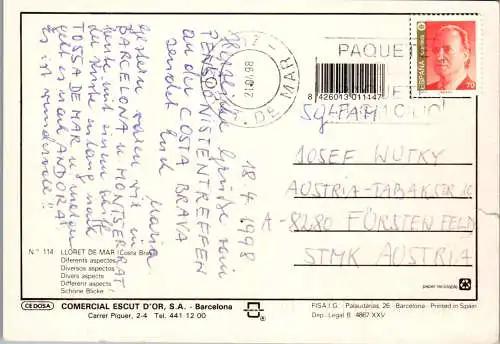 18.4.1998
Herzliche Grüße vom
PENSIONISTENTREFFEN
an der COSTA BRAVA
sendet Euch
Maria
Gestern waren wir in
BARCELONA u MONTSERRAT
heute mit einem Schiff
der Küste entlang nach
TOSSA DE MAR u morgen
geht es nach ANDORRA!
Es ist wunderschön!!
N.º 114 LLORET DE MAR (Costa Brava)
Diferents aspectes
Diversos aspectos
Divers aspects
Different aspects
Schöne Blicke
CEDOSA
COMERCIAL ESCUT D'OR, S.A. - Barcelona
Carrer Piquer, 2-4 Tel. 441 12 00
DE MAR
PAQUE
8 426013 011147
ESPAÑA
correos
70
JOSEF WUTKY
AUSTRIA-TABAKSTR 10
A-8280 FÜRSTENFELD
STMK AUSTRIA
paper recyclable
FISA I.G. - Palaudarias, 26 - Barcelona - Printed in Spain
Dep. Legal B. 4867 XXV